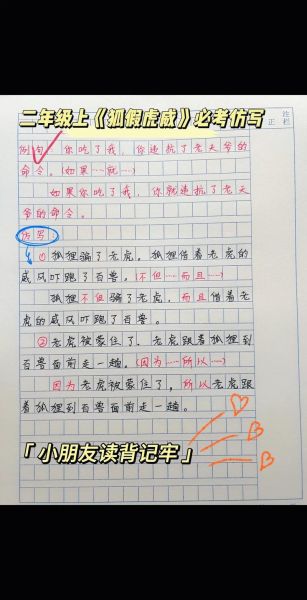 二年级上《狐假虎威》必考仿写
订正栏
例句 你吃了我，你违抗了老天爷的
命令。（如果…就…）
如果你吃了我，你就违抗了老天
爷的命令。
仿写：
①狐狸骗了老虎。狐狸借着老虎的
威风吓跑了百兽。（不但…而且…）
狐狸不但骗了老虎，而且借着老
虎的威风吓跑了百兽。
②老虎被蒙住了。老虎跟着狐狸到
百兽面前走一趟。（因为……所以…）
因为老虎被蒙住了，所以老虎跟
着狐狸到百兽面前走一趟。
「小朋友读背记牢」